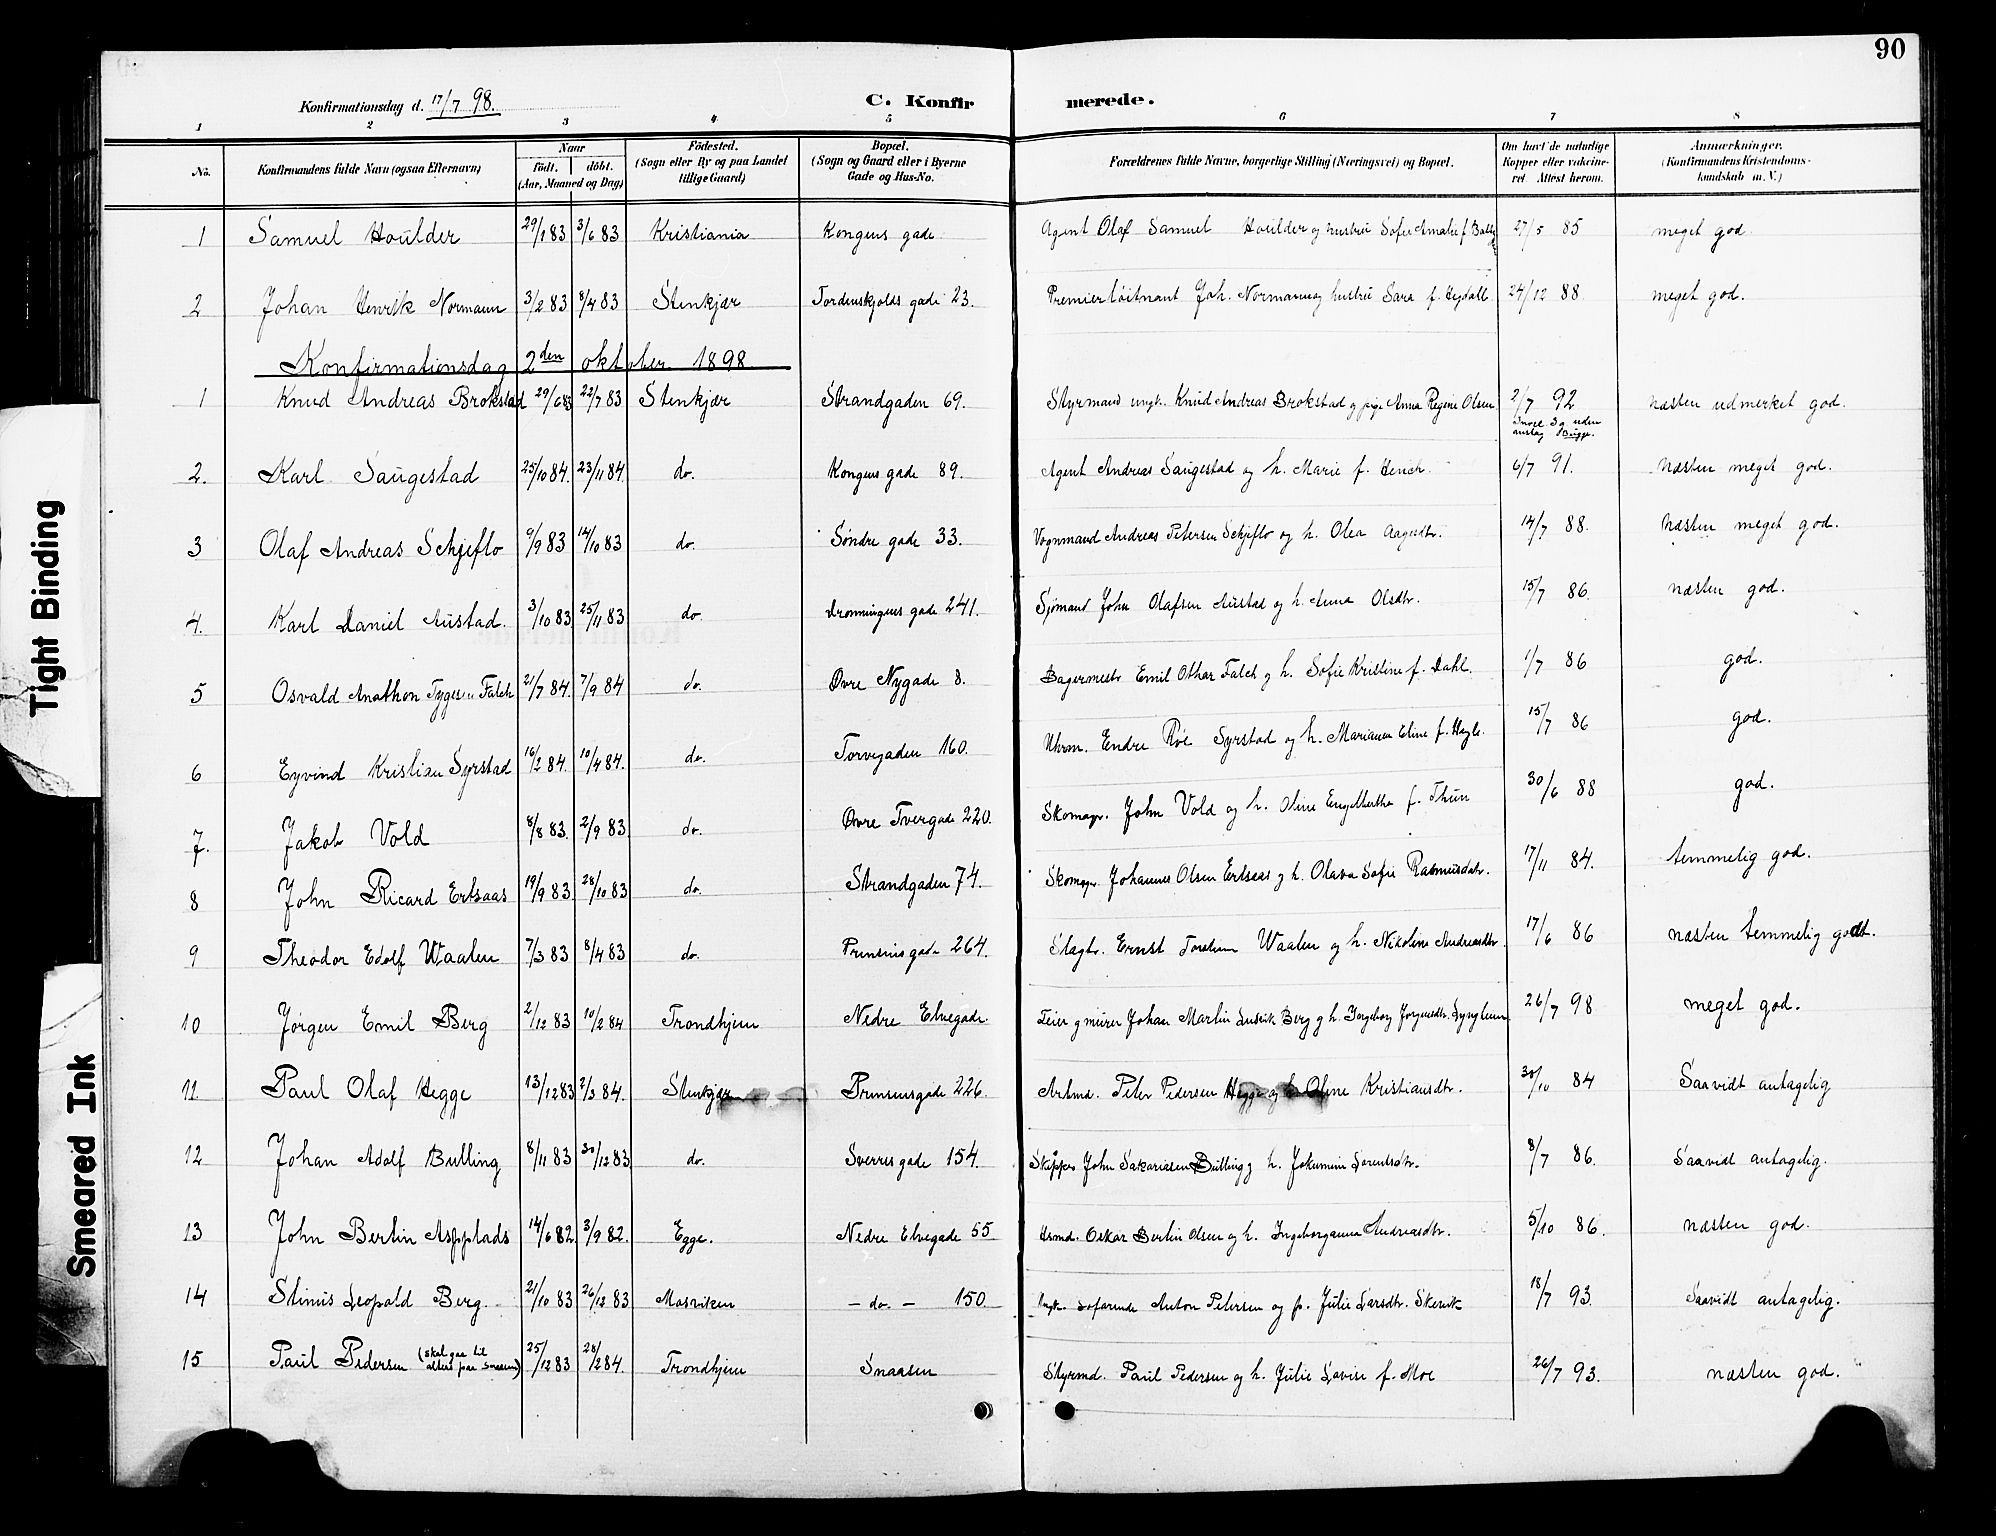 90
Konfirmationsdag d. 17/7 98.
C. Konfir merede.
1 2 3 4 5 6 7 8
No. Konfirmandens fulde Navn (ogsaa Efternavn) Naar født. døbt. (Aar, Maaned og Dag) Fødested. (Sogn eller By og paa Landet tillige Gaard) Bopæl. (Sogn og Gaard eller i Byerne Gade og Hus-No. Forældrenes fulde Navne, borgerlige Stilling (Næringsvei) og Bopæl. Om havt de naturlige Kopper eller vakcineret. Attest herom. Anmærkninger. (Konfirmandens Kristendomskundskab m. V.)
1 Samuel Houlder 29/1 83 3/6 83 Kristiania Kongens gade Agent Olaf Samuel Houlder og hustru Sofie Amalie f. 27/5 85 meget god
2 Johan Henrik Normann 3/2 83 8/4 83 Stenkjær Tordenskjolds gade 23. Premierløitnant Joh. Normann og hustru Sara f. Heydall 24/12 88 meget god.
Konfirmationsdag 2den oktober 1898
1 Knud Andreas Brokstad 29/6 83 22/7 83 Stenkjær Strandgaden 69. Styrmand ungk. Knud Andreas Brokstad og pige Anna Regine Olsen 2/7 92 næsten udmerket god.
2. Karl Saugestad 25/10 84. 23/11 84. do. Kongens gade 89. Agent Andreas Saugestad og h. Marie f. Henich. 6/7 91. næsten meget god.
3 Olaf Andreas Schjeflo 9/9 83 14/10 83 do. Søndre gade 33. Vognmand Andreas Petersen Schjeflo og h. Olea Aagesdtr. 14/7 88. næsten meget god.
4. Karl Daniel Austad. 3/10 83 25/11 83 do. Dronningens gade 241. Sjømand John Olafsen Austad og h. Anna Olsdtr. 15/7 86. næsten god.
5 Osvald Anathon Tygesen Falch 21/7 84. 7/9 84 do. Øvre Nygade 8. Bagermestr Emil Othar Falch og h. Sofie Kristine f. Dahl. 1/7 86 god.
6 Eyvind Kristian Syrstad 16/2 84. 10/4 84. do. Torvegaden 160. Uhrm. Endre Roe Syrstad og h. Marianna Eline f. 15/7 86 god.
7. Jakob Vold 8/8 83. 2/9 83. do. Øvre Tvergade 220. Skomagr. John Vold og h. Oline Engelbertha f. Thun 30/6 88 god.
8 John Ricard Ertsaas 19/9 83. 28/10 83 do. Strandgaden 74. Skomagr. Johannes Olsen Ertsaas og h. Olava Sofie Rasmusdatr. 17/11 84. temmelig god.
9 Theodor Edolf Waalen 7/3 83 8/4 83 do. Prinsensgade 264. Slagtr. Ernst Waalen og h. Nikoline Andreasdtr. 17/6 86 næsten temmelig godt.
10 Jørgen Emil Berg 2/12 83 10/2 84 Trondhjem Nedre Elvegade. Feier og murer Johan Martin Ludvik Berg og h. Ingeborg Jørgensdtr. 26/7 98 meget god.
11. Paul Olaf Hegge 13/12 83 2/3 84. Stenkjær Prinsensgade 226. Arbmd. Peter Pedersen Hegge og h. Oline Kristiansdtr. 30/10 84 Saavidt antagelig
12 Johan Adolf Bulling 8/11 83 30/12 83 do. Sverres gade 154. Skipper John Sakariasen Bulling og h. Jokumine Lorentsdtr. 8/7 86. Saavidt antagelig.
13 John Bertin Asp 14/6 82. 3/9 82. Egge. Nedre Elvegade 55 Husmd. Oskar Bertin Olsen og h. Ingeborganna Andreasdtr. 5/10 86. næsten god.
14 Stinus Leopold Berg. 21/10 83 26/12 83 Mosviken – do. – 150 Ungk. søfarende Anton Petersen og p. Julie Larsdtr. Skervik 18/7 93. Saavidt antagelig.
15 Paul Pedersen (skal gaa til alters paa Snaasen) 25/12 83 28/2 84. Trondhjem Snaasen Styrmd. Paul Pedersen og h. Julie Lovise f. Moe 26/7 93. næsten god.
Tight Binding
Smeared Ink